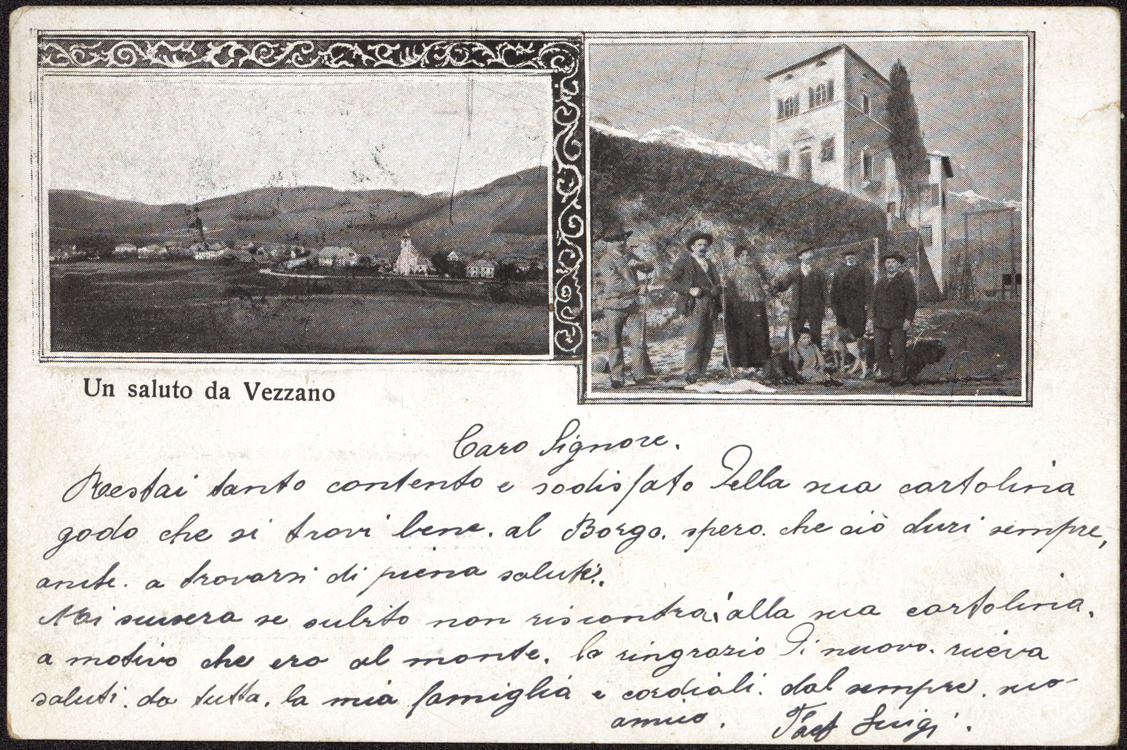 Un saluto da Vezzano
Caro Signore.
Restai tanto contento e sodisfato Della sua cartolina
godo che si trovi bene. al Borgo. spero. che ciò duri sempre,
anche. a trovarsi di piena salute.
Mi scusera se subito non riscontrai alla sua cartolina.
a motivo che ero al monte. la ringrazio Di nuovo. riceva
saluti. da tutta. la mia famiglia e cordiali. dal sempre. suo
amico. Luigi.